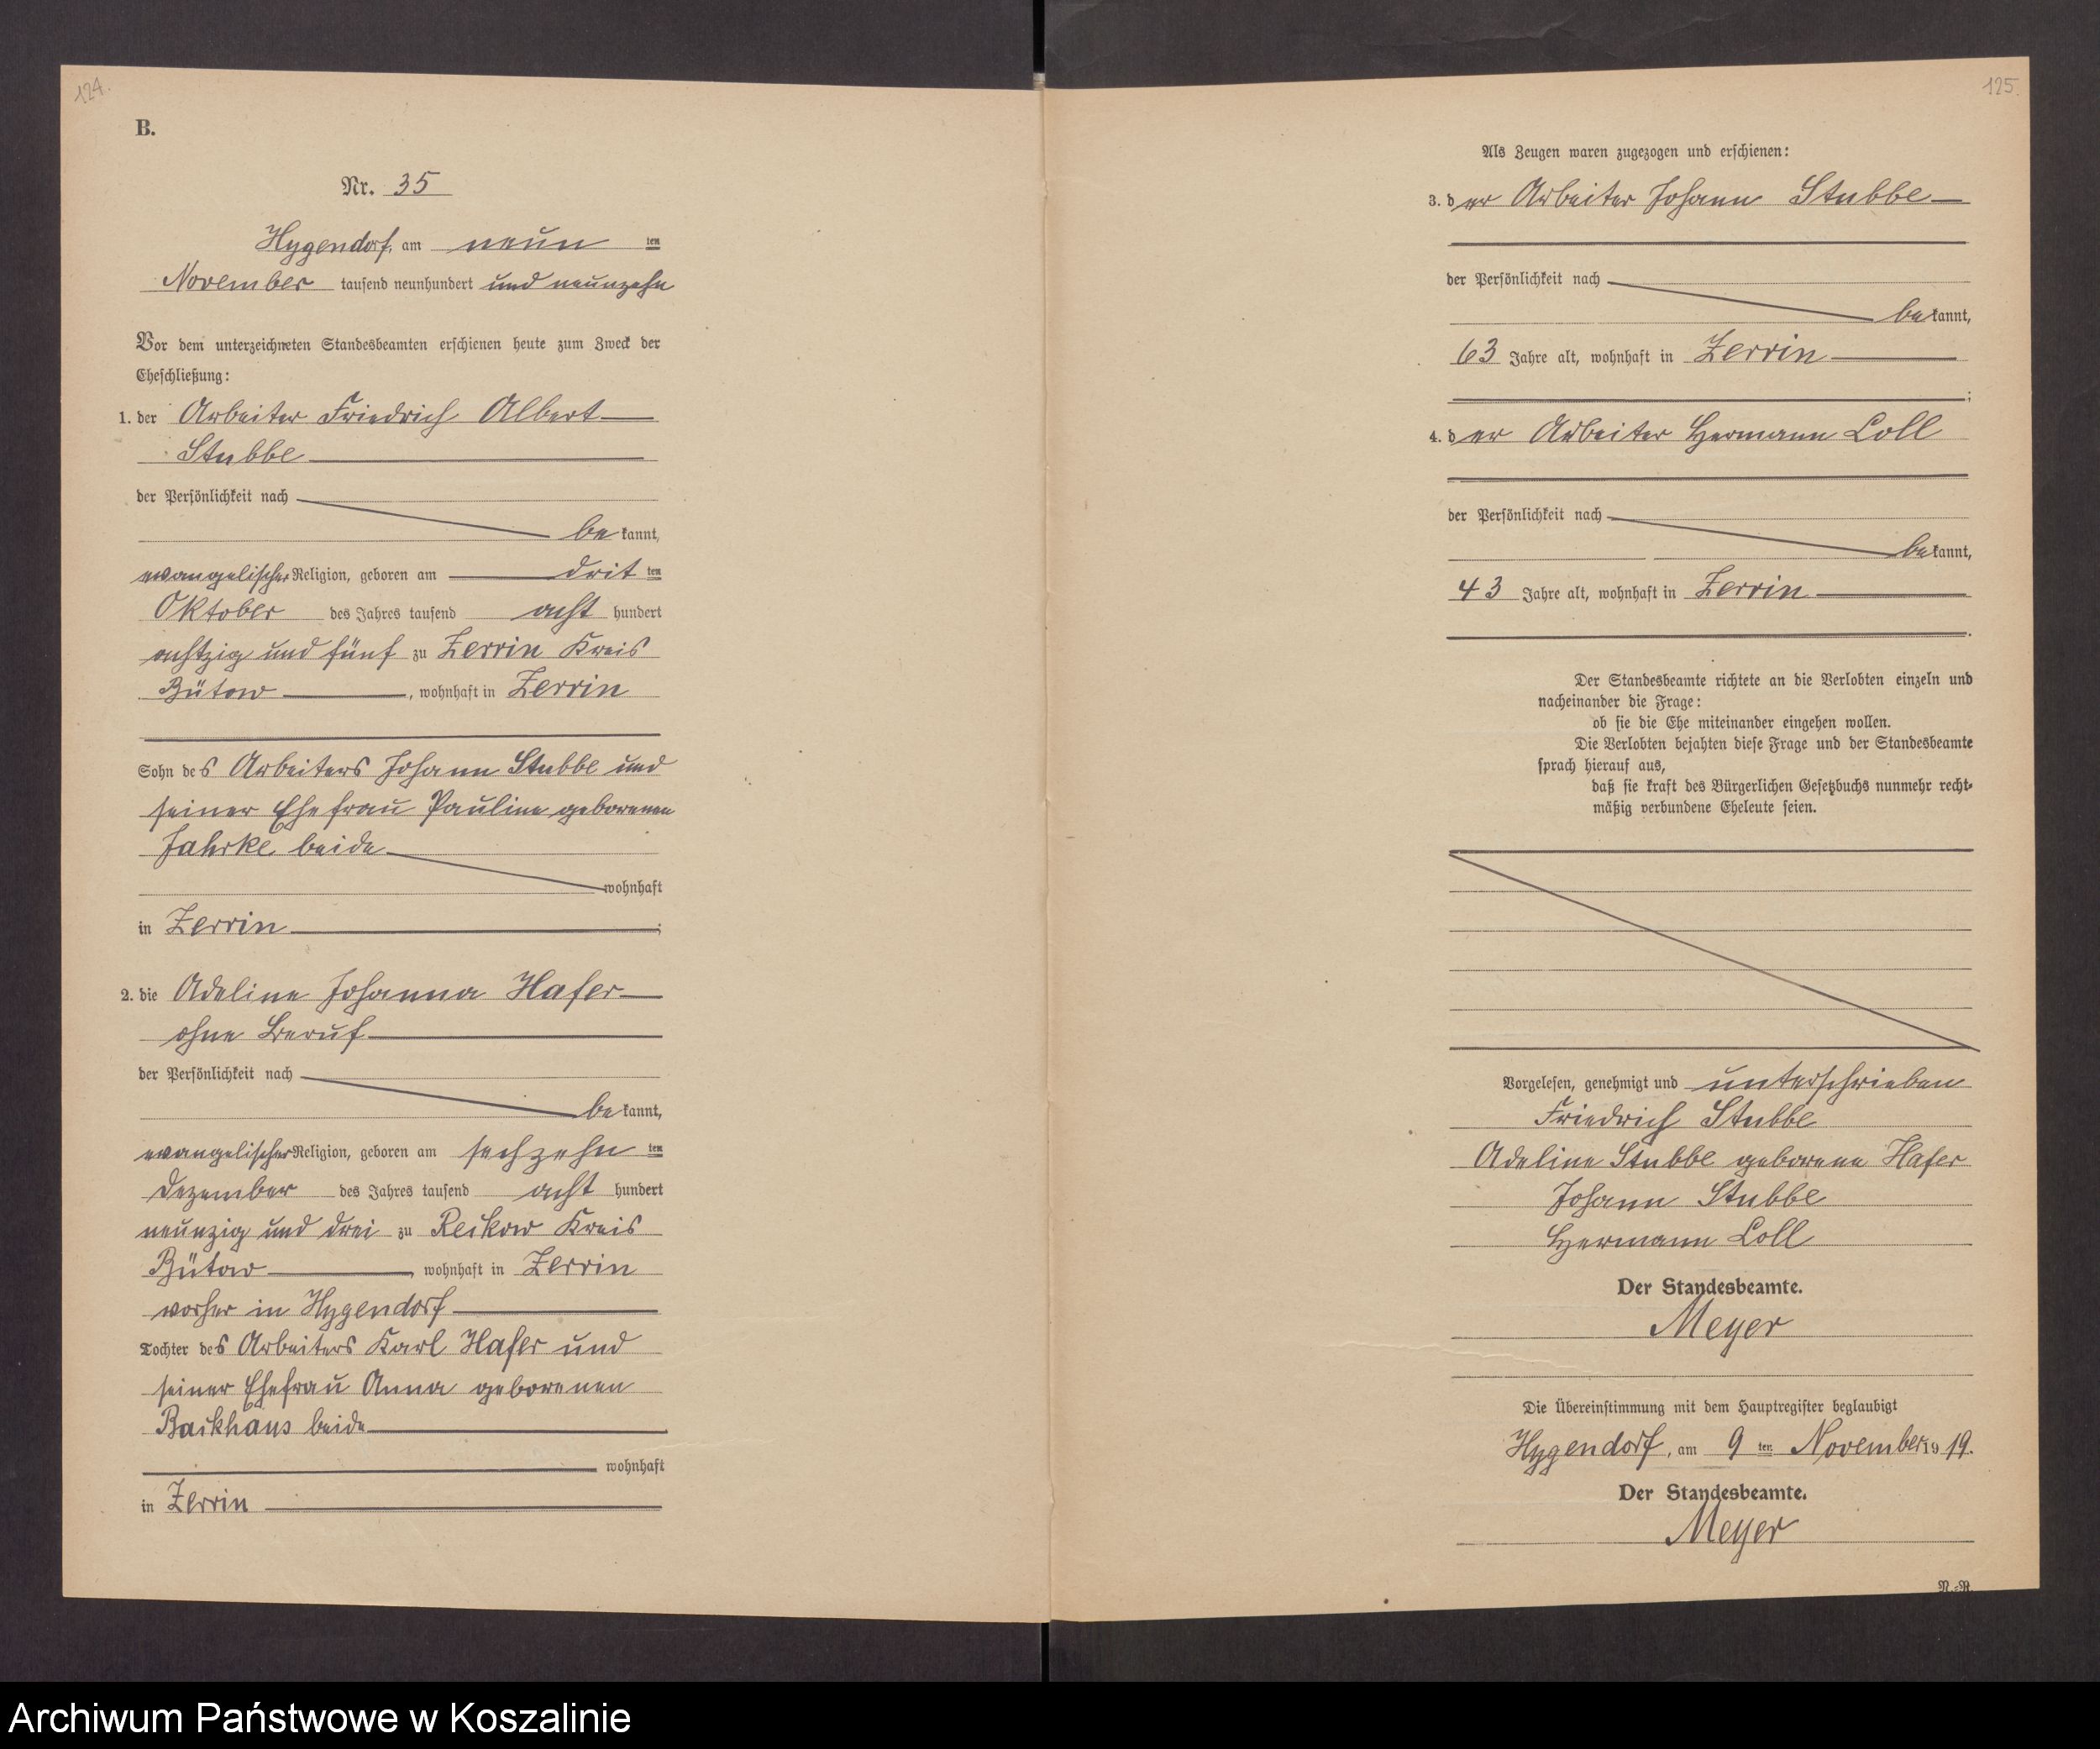 124.
B.
Nr. 35
Hygendorf, am neun ten
November tausend neunhundert und neunzehn
Vor dem unterzeichneten Standesbeamten erschienen heute zum Zweck der
Eheschließung:
1. der Arbeiter Friedrich Albert
Stubbe
der Persönlichkeit nach
be kannt,
evangelischer Religion, geboren am drit ten
Oktober des Jahres tausend acht hundert
achtzig und fünf zu Zerrin Kreis
Bütow, wohnhaft in Zerrin
Sohn des Arbeiters Johann Stubbe und
seiner Ehefrau Pauline geborenen
Jahrke beide
wohnhaft
in Zerrin;
2. die Adeline Johanna Hafer
ohne Beruf
der Persönlichkeit nach
be kannt,
evangelischer Religion, geboren am sechzehn ten
Dezember des Jahres tausend acht hundert
neunzig und drei zu Reckow Kreis
Bütow, wohnhaft in Zerrin
vorher in Hygendorf
Tochter des Arbeiters Karl Hafer und
seiner Ehefrau Anna geborenen
Backhaus beide
wohnhaft
in Zerrin
125.
Als Zeugen waren zugezogen und erschienen:
3. der Arbeiter Johann Stubbe
der Persönlichkeit nach
be kannt,
63 Jahre alt, wohnhaft in Zerrin
;
4. der Arbeiter Hermann Loll
der Persönlichkeit nach
be kannt,
43 Jahre alt, wohnhaft in Zerrin
.
Der Standesbeamte richtete an die Verlobten einzeln und
nacheinander die Frage:
ob sie die Ehe miteinander eingehen wollen.
Die Verlobten bejahten diese Frage und der Standesbeamte
sprach hierauf aus,
daß sie kraft des Bürgerlichen Gesetzbuchs nunmehr recht-
mäßig verbundene Eheleute seien.
Vorgelesen, genehmigt und unterschrieben
Friedrich Stubbe
Adeline Stubbe geborene Hafer
Johann Stubbe
Hermann Loll
Der Standesbeamte.
Meyer
Die Übereinstimmung mit dem Hauptregister beglaubigt
Hygendorf, am 9 ten November 19 19.
Der Standesbeamte.
Meyer
N.-R.
Archiwum Państwowe w Koszalinie